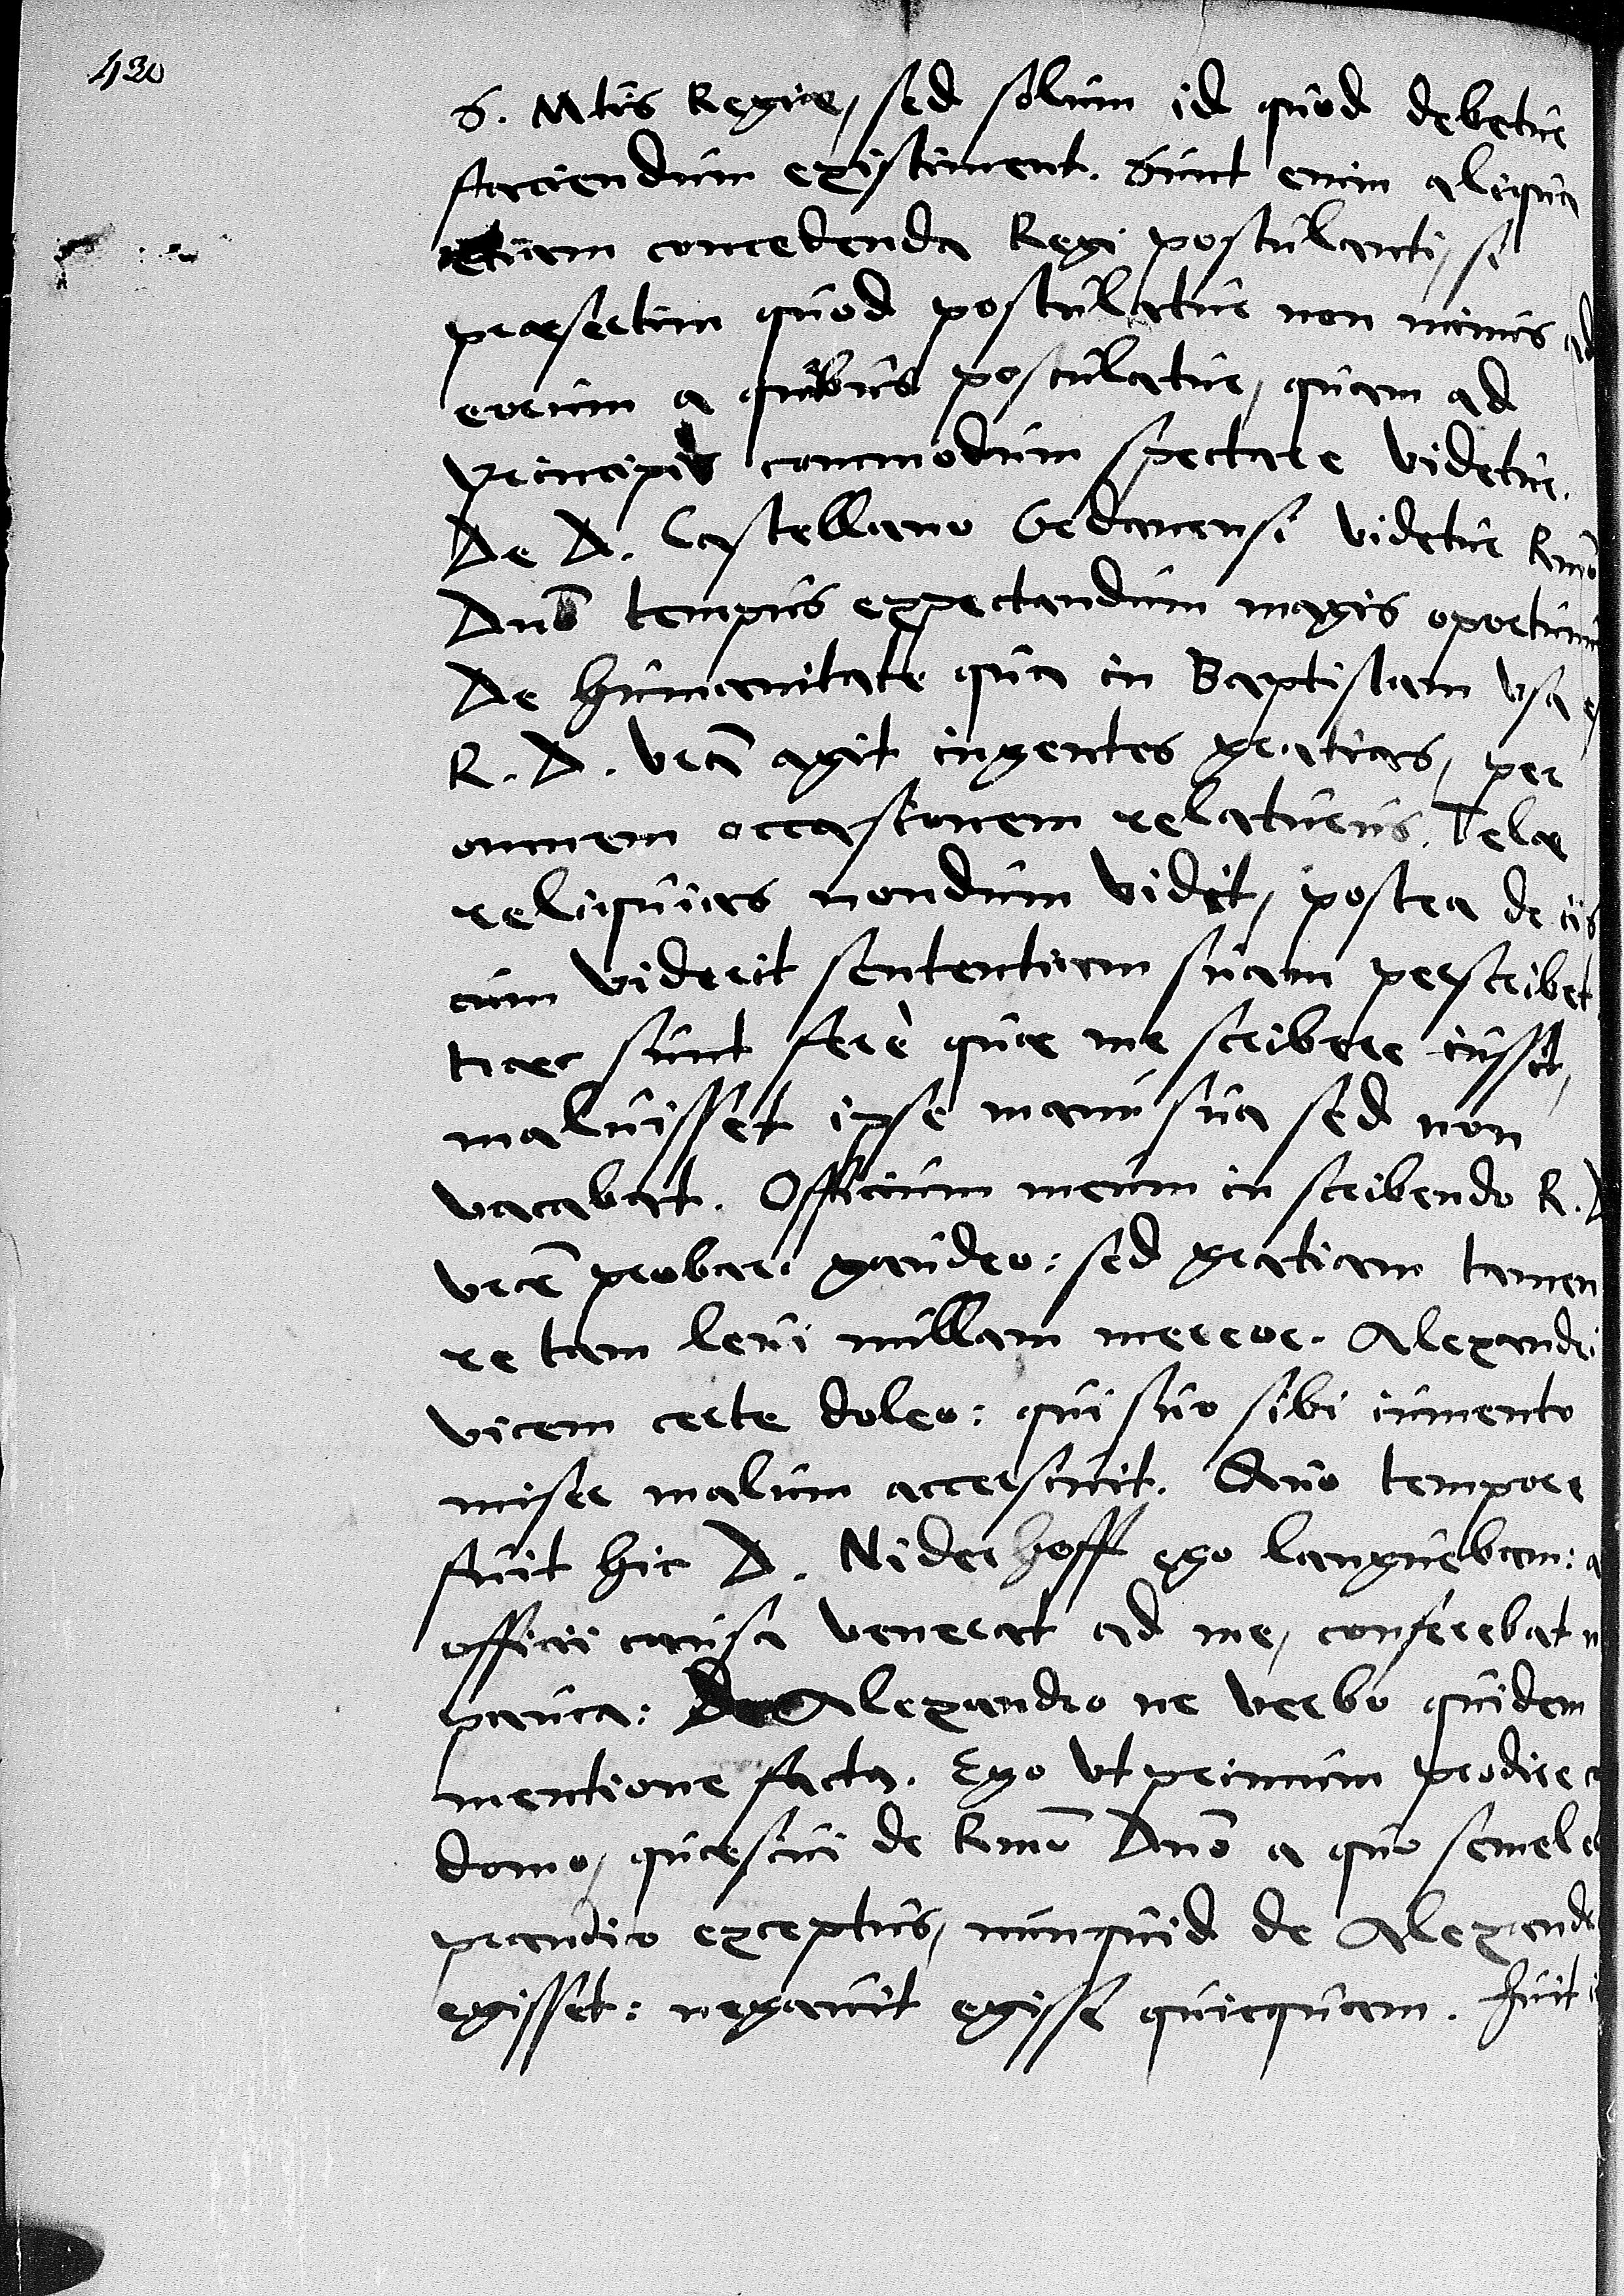 430
S. Mtis Regiae, sed solum id quod debetur
faciendum existiment. Sunt enim aliqua
etiam concedenda Regi postulanti, si
praesertim quod postulatur non minus ad
eorum a quibus postulatur, quam ad
principis commodum spectare videtur.
De D. Castellano Gedanensi videtur Rmo
Dno tempus expectandum magis oportunu
De humanitate qua in Baptistam usa e
R. D. vra agit ingentes gratias, per
omnem occasionem relaturus. Telae
reliquias nondum vidit, postea de iis
cum viderit sententiam suam perscribet
Haec sunt ferè quae me scribere iussit,
maluisset ipse manu sua sed non
vacabat. Officium meum in scribendo R. D
vrae probari gaudeo: sed gratiam tamen
re tam levi nullam mereor. Alexandri
vicem certe doleo: qui suo sibi iumento
miser malum accersivit. Quo tempore
fuit hic D. Niderhoff ego languebam:
officii causa venerat ad me, conferebat
pauca: De Alexandro ne verbo quidem
mentione facta. Ego ut primum prodire
domo, quaesivi de Rmo Dno a quo semel
prandio exceptus, numquid de Alexand
egisset: negavit egisse quicquam. Fuit